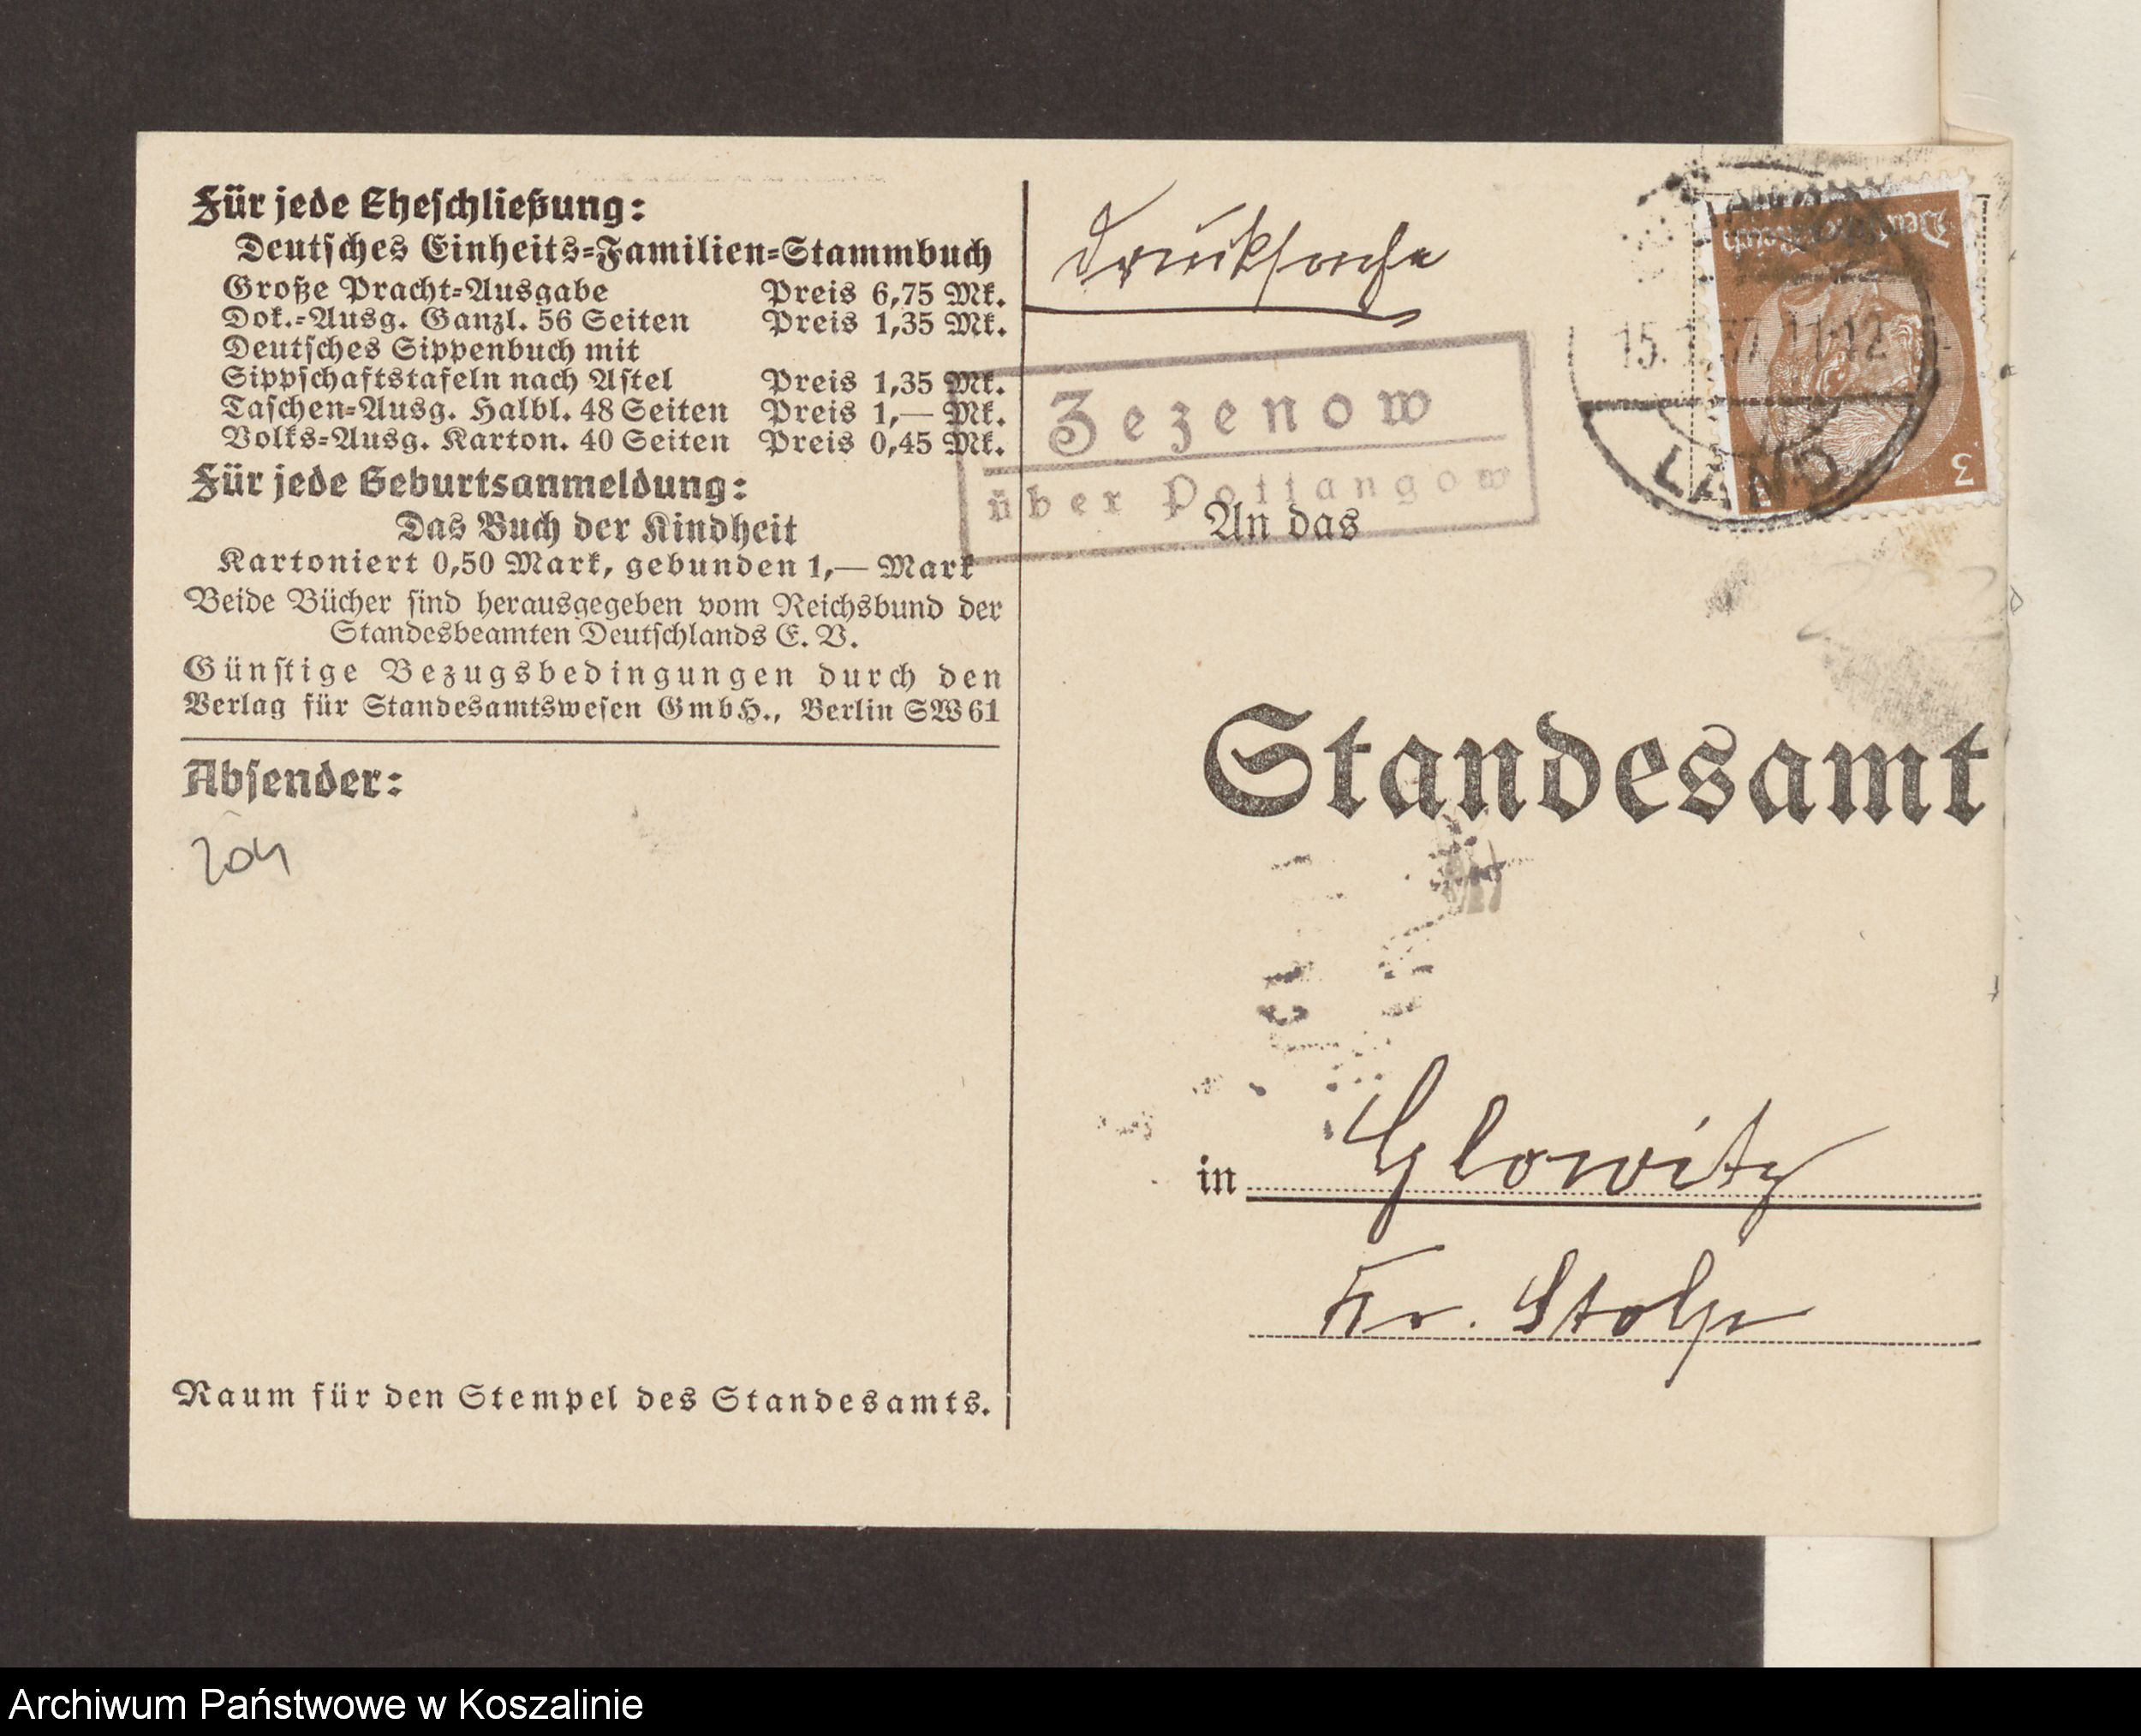 Für jede Eheschließung:
Deutsches Einheits-Familien-Stammbuch
Große Pracht-Ausgabe Preis 6,75 Mk.
Dok.-Ausg. Ganzl. 56 Seiten Preis 1,35 Mk.
Deutsches Sippenbuch mit
Sippschaftstafeln nach Astel Preis 1,35 Mk.
Taschen-Ausg. Halbl. 48 Seiten Preis 1,— Mk.
Volks-Ausg. Karton. 40 Seiten Preis 0,45 Mk.
Für jede Geburtsanmeldung:
Das Buch der Kindheit
Kartoniert 0,50 Mark, gebunden 1,— Mark
Beide Bücher sind herausgegeben vom Reichsbund der
Standesbeamten Deutschlands E. V.
Günstige Bezugsbedingungen durch den
Verlag für Standesamtswesen GmbH., Berlin SW 61
Absender:
204
Raum für den Stempel des Standesamts.
Drucksache
Zezenow
über Pottangow
Deutsches Reich
3
11-12
LAND
An das
Standesamt
in Glowitz
Kr. Stolp
Archiwum Państwowe w Koszalinie